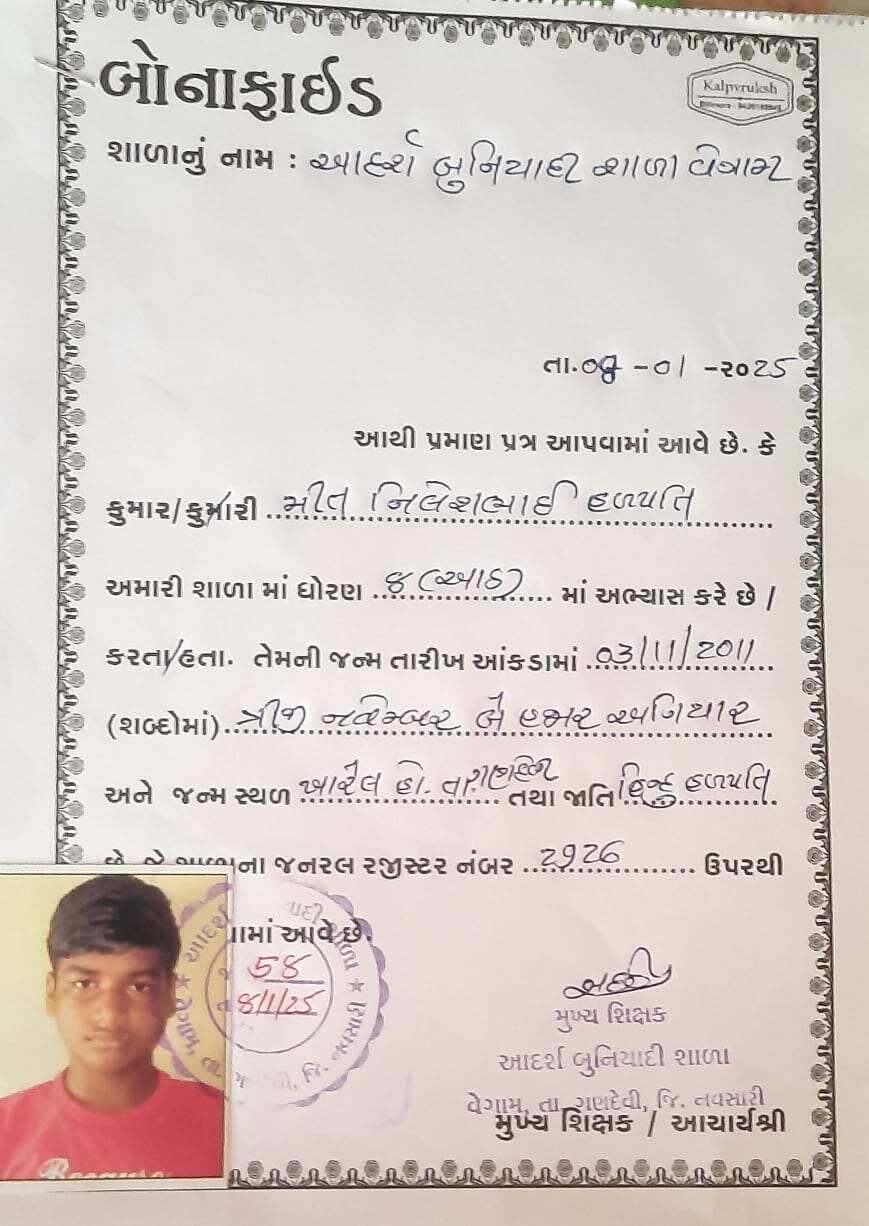 બોનાફાઈડ
Kalpvruksh
શાળાનું નામ : આદર્શ બુનિયાદી શાળા વેગામ
તા.૦8 -૦1 -૨૦25
આથી પ્રમાણ પત્ર આપવામાં આવે છે. કે
કુમાર/કુમારી મીત નિલેશભાઈ હળપતિ
અમારી શાળા માં ધોરણ ૮ (આઠ) માં અભ્યાસ કરે છે /
કરતા/હતા. તેમની જન્મ તારીખ આંકડામાં 03/11/2011
(શબ્દોમાં) ત્રીજી નવેમ્બર બે હજાર અગિયાર
અને જન્મ સ્થળ ખારેલ તા. ગણદેવી તથા જાતિ હિન્દુ હળપતિ
છે. ના જનરલ રજીસ્ટર નંબર 2926 ઉપરથી
માં આવે છે.
58
8/1/25
મુખ્ય શિક્ષક
આદર્શ બુનિયાદી શાળા
વેગામ, તા. ગણદેવી, જિ. નવસારી
મુખ્ય શિક્ષક / આચાર્યશ્રી